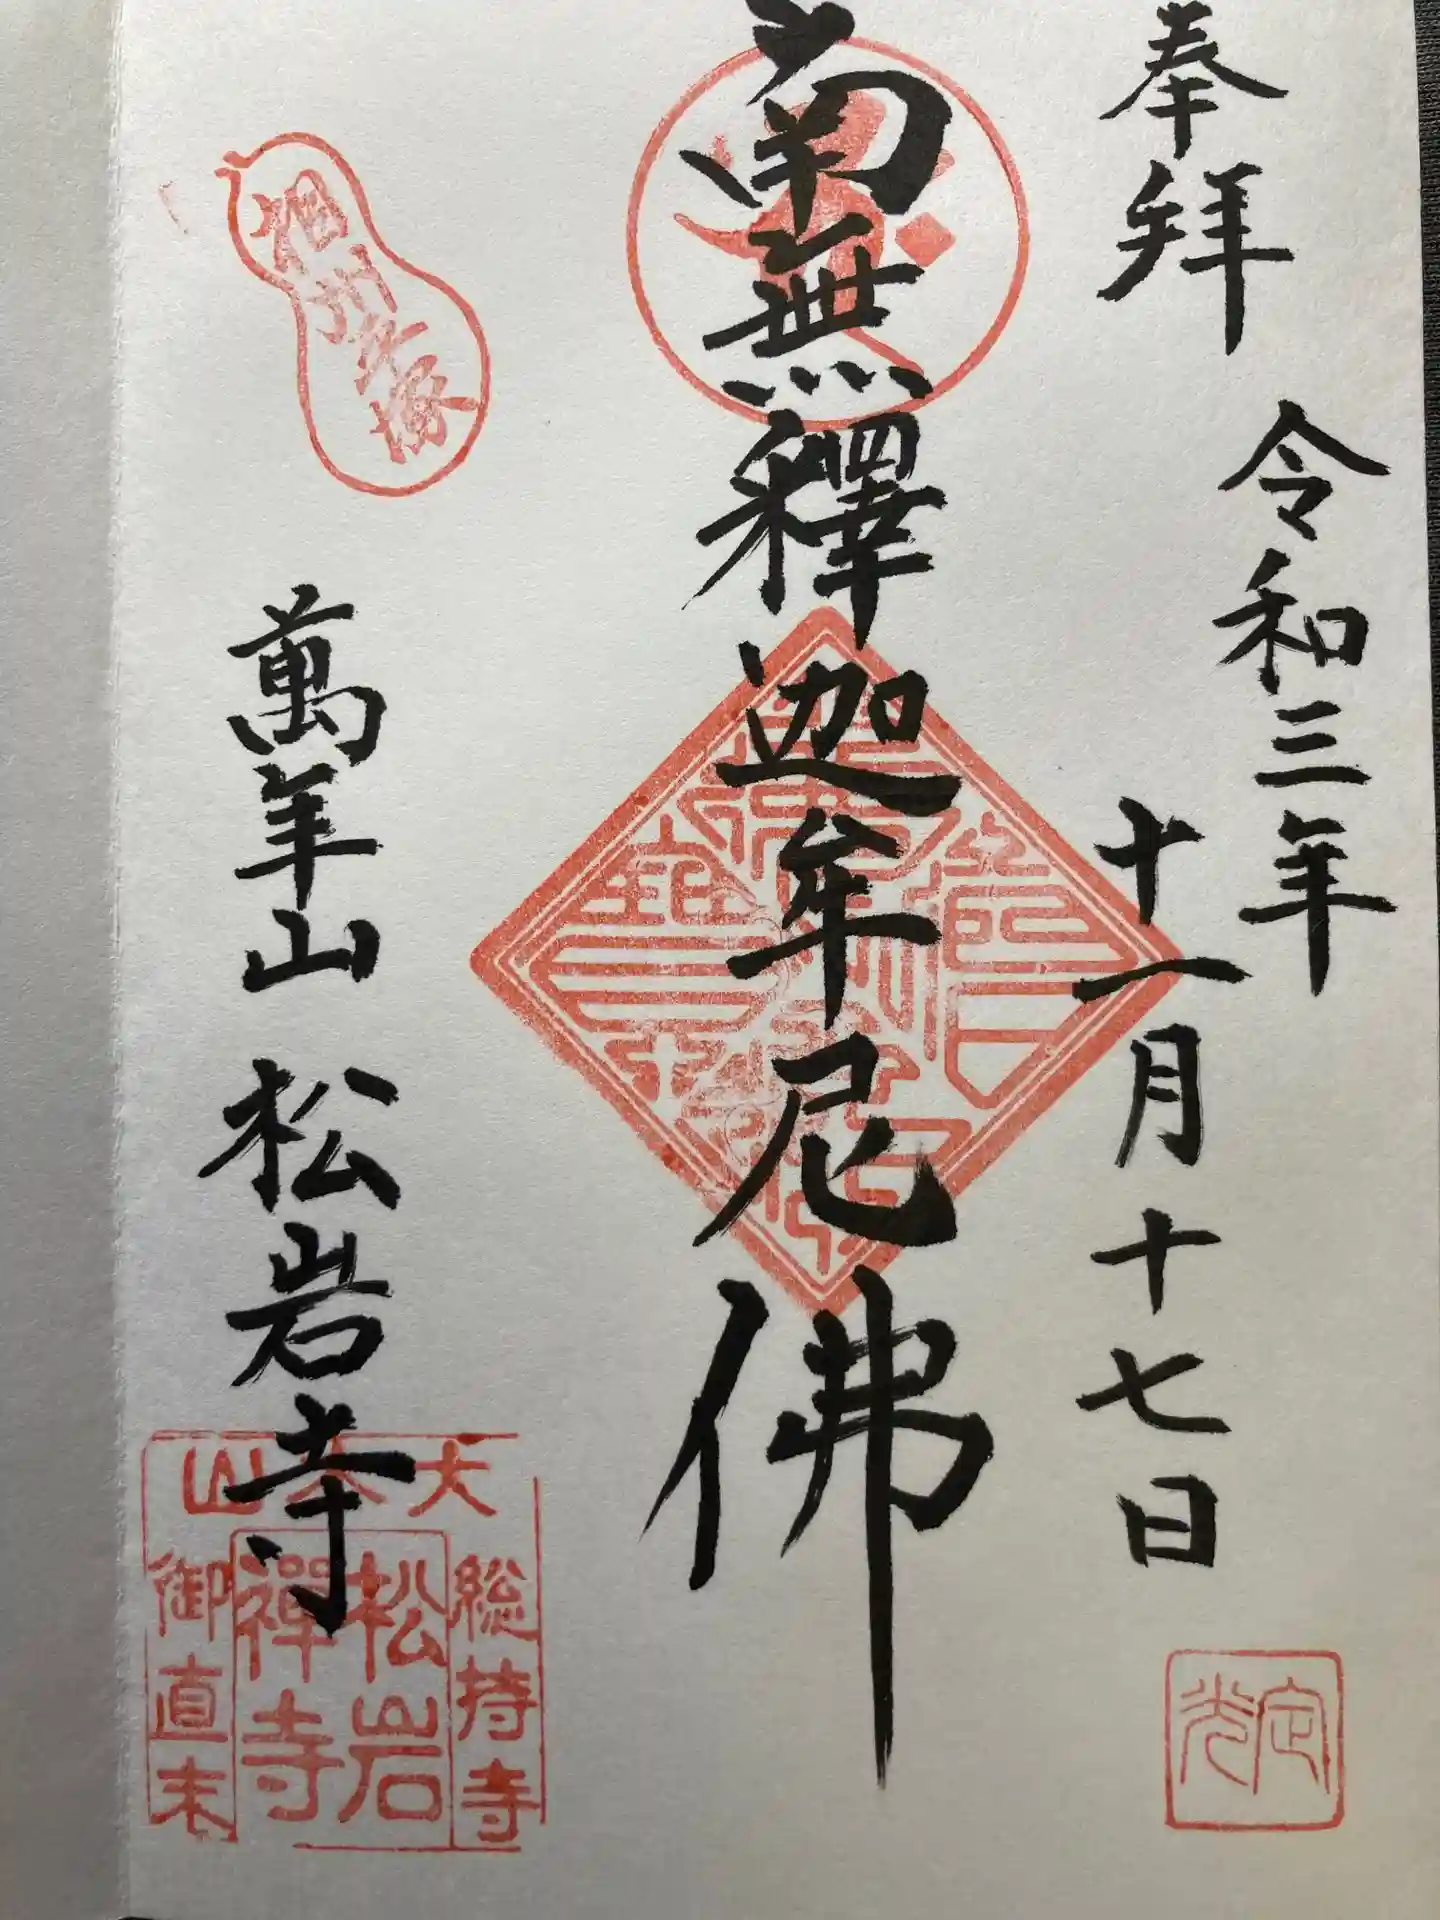 奉拜
令和三年
十一月十七日
定光
南無釋迦牟尼佛
萬年山 松岩寺
大本山
総持寺
松岩
禅寺
御直末